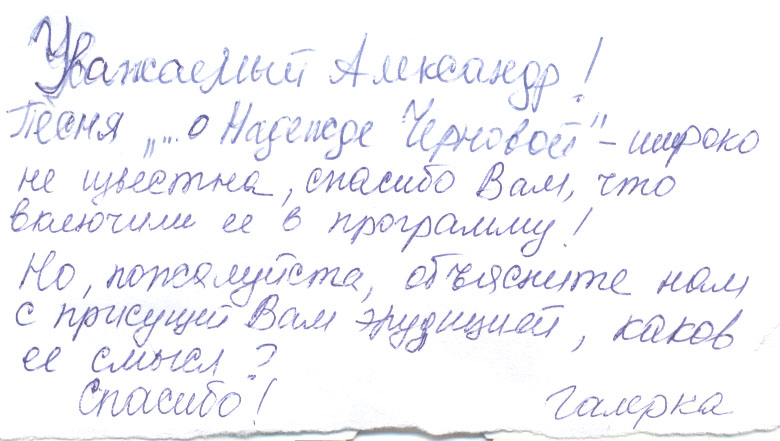 Уважаемый Александр!
Песня „... о Надежде Черновой" – широко
не известна, спасибо Вам, что
включили ее в программу!
Но, пожалуйста, объясните нам
с присущей Вам эрудицией, каков
ее смысл?
Спасибо! Галерка